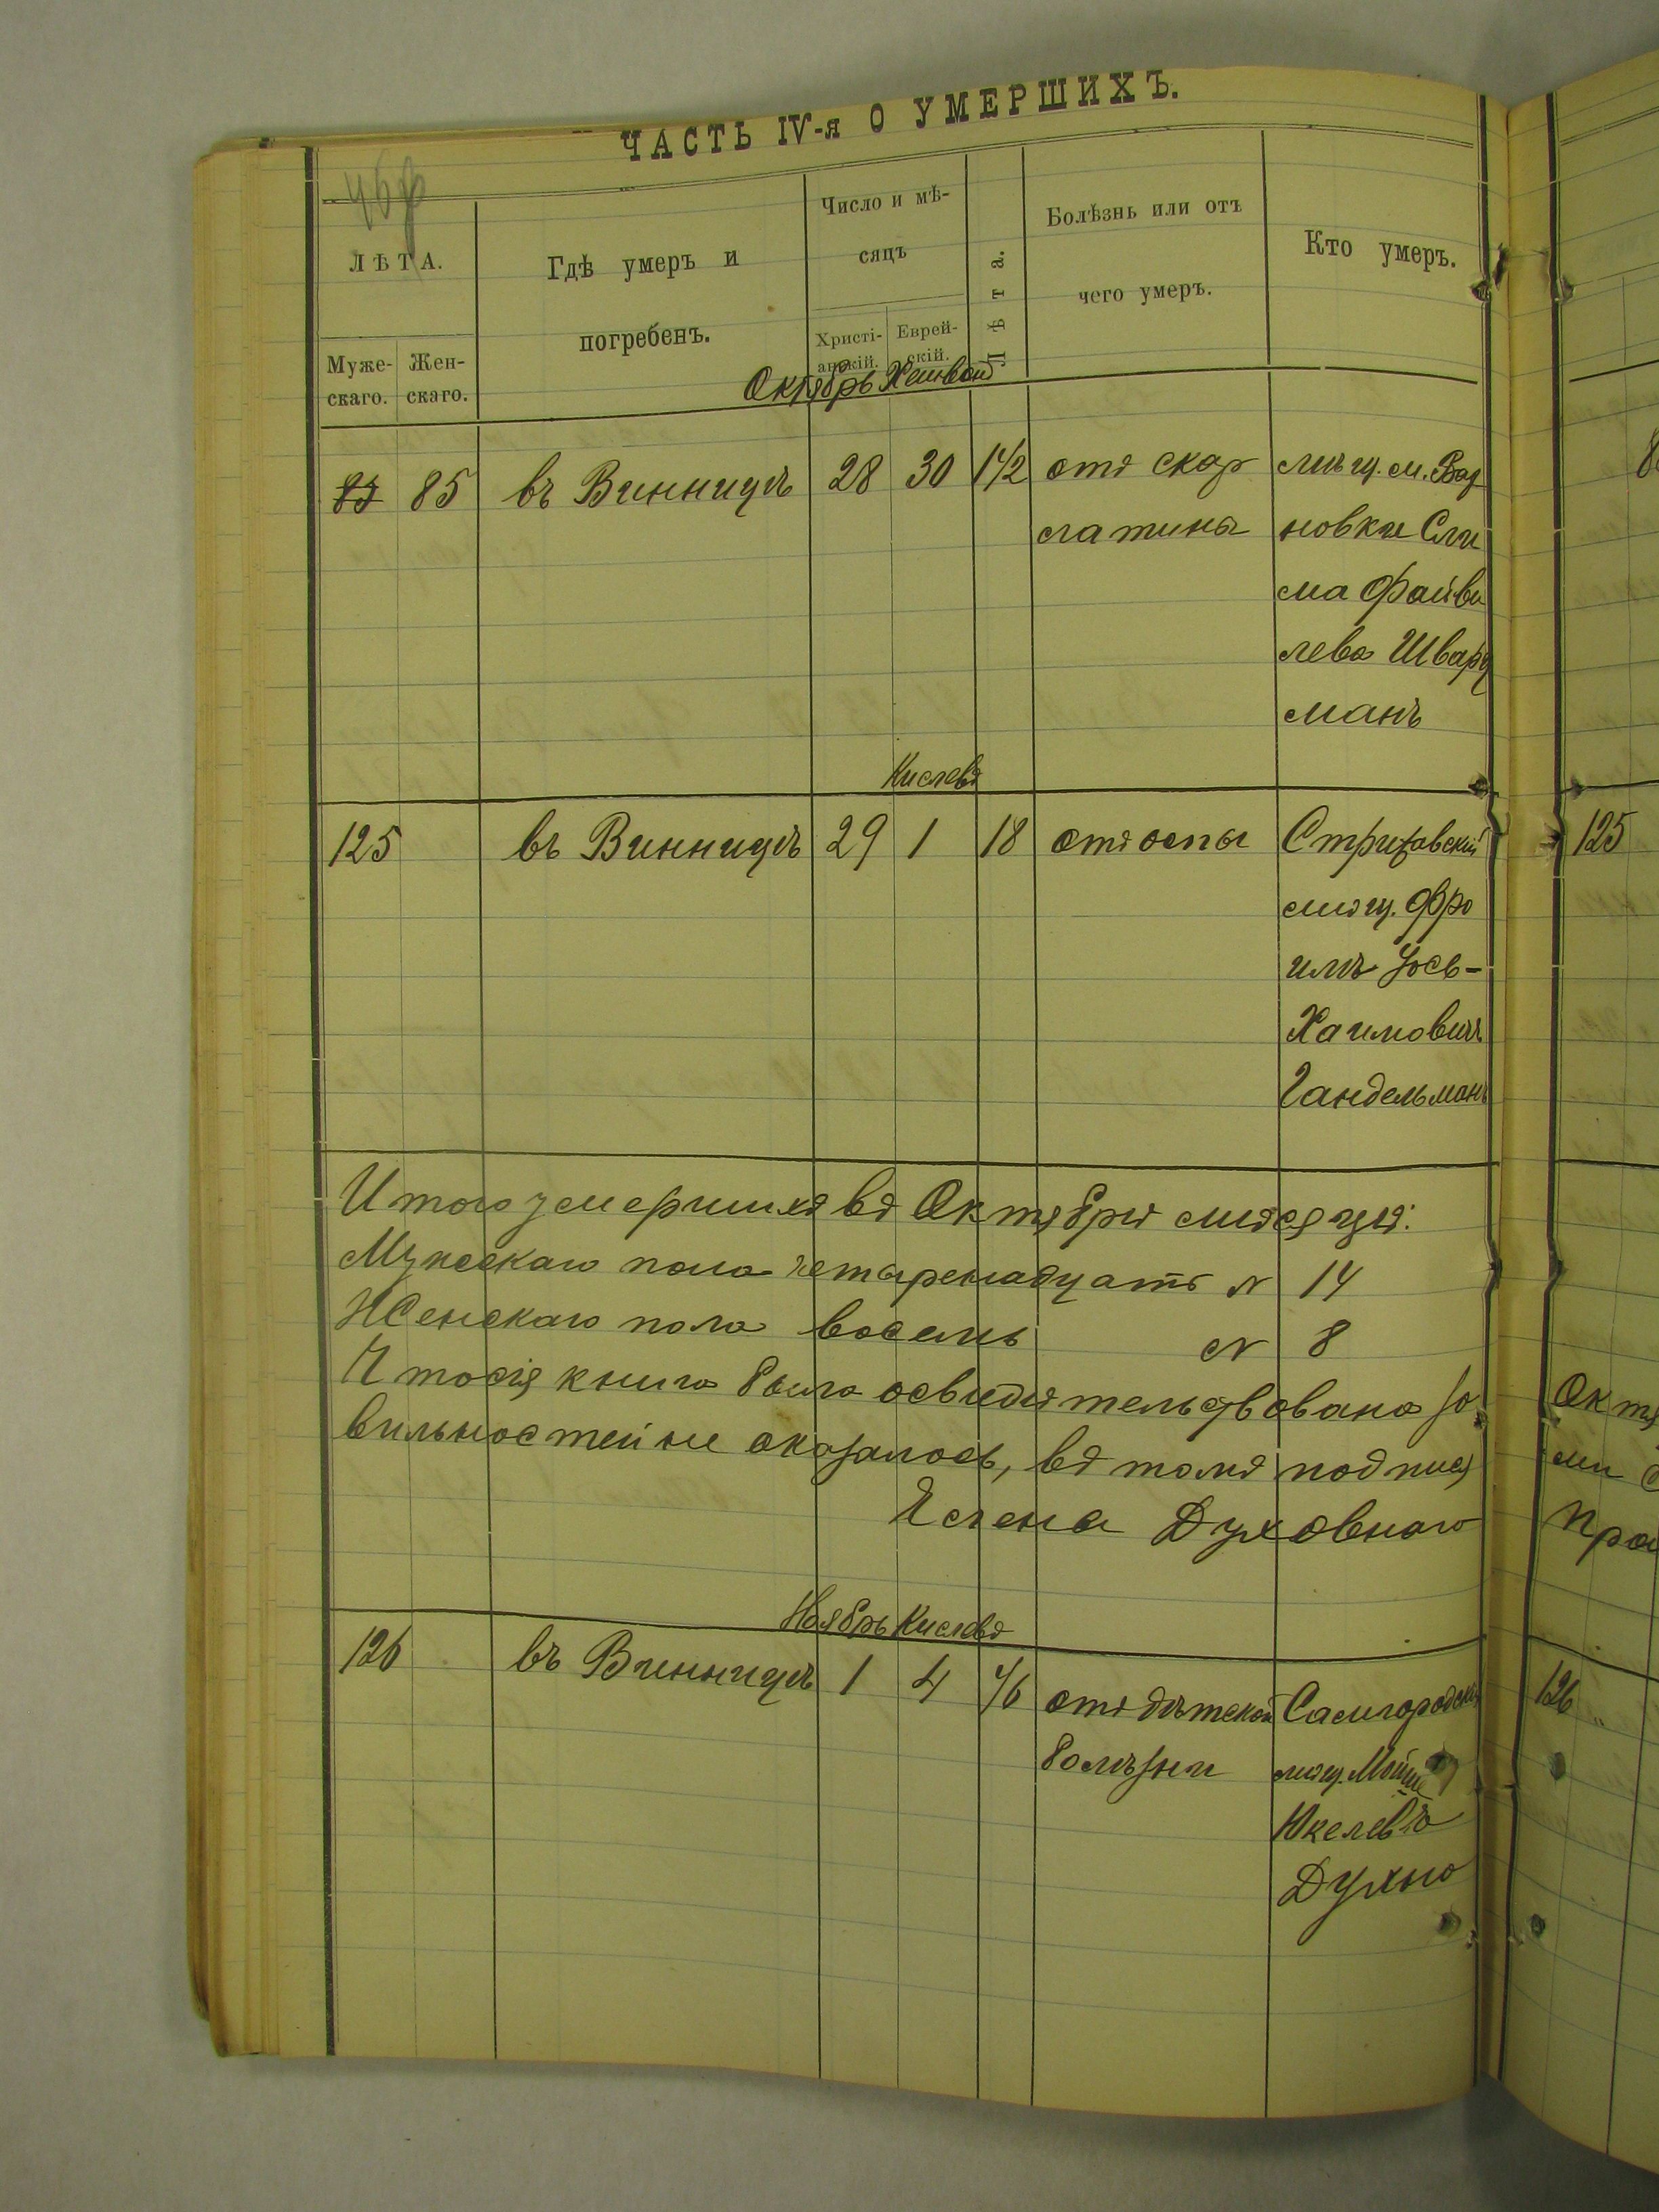 ЧАСТЬ IV-я О УМЕРШИХЪ.
ЛѢТА.
Муже-
скаго.
Жен-
скаго.
Гдѣ умеръ и
погребенъ.
Число и мѣ-
сяцъ
Христі-
анскій.
Еврей-
скій.
Лѣта.
Болѣзнь или отъ
чего умеръ.
Кто умеръ.
Октябрь Хешвонд
85 85 въ Винницѣ 28 30 1 1/2 отъ скар мѣщ. м.
латины новки Сли
ма Файви
лева Шварц
манъ
Кислевъ
125 въ Винницѣ 29 1 18 отъ оспы Стрижавскій
мѣщ. Фро
имъ Іось-
Хаимовичъ
Гандельманъ
125
Итого умершихъ въ Октябрѣ мѣсяцѣ:
Мужскаго пола четыренадцать № 14
Женскаго пола восемь № 8
Что сія книга была освидѣтельствована
вильностей не оказалось, въ томъ подпися
Члена Духовнаго
Ноябрь Кислевъ
126 въ Винницѣ 1 4 1/6 отъ дѣтской Самгородскій
болѣзни мѣщ. Мойше
Юкелевъ
Духно
126